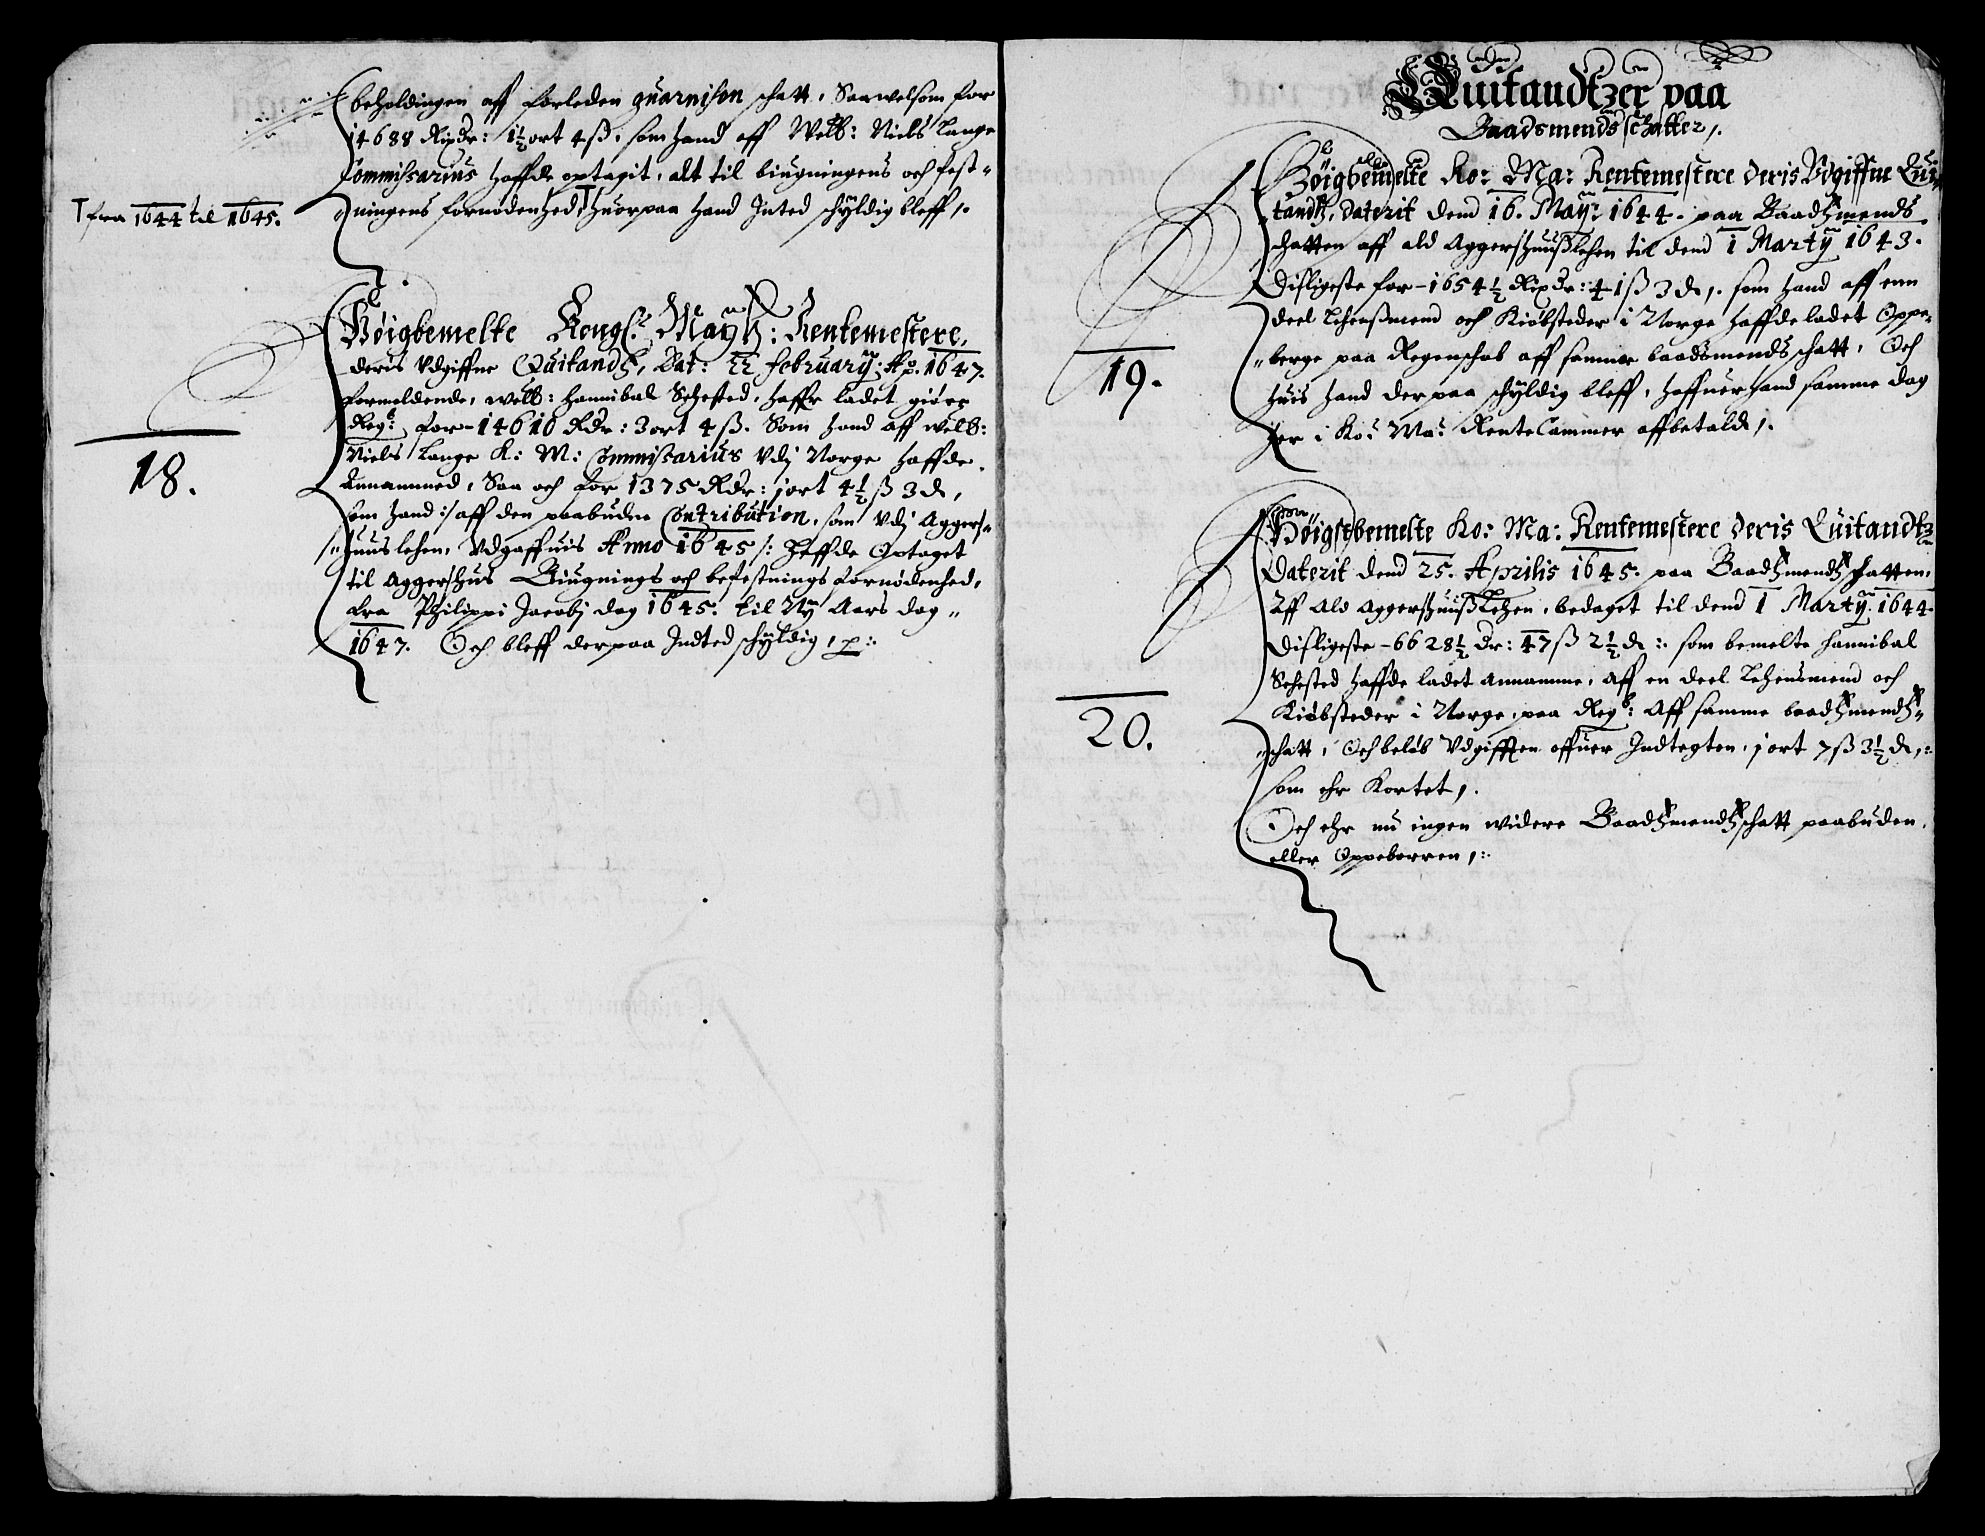 beholdingen aff forleden guarnison schatt, Saawelsom for
14688 Rixdr: 1½ ort 4 ß. som hand aff Welb: Niels Lange
Commissarius haffde optagit, alt til biugningens och fest-
ningens fornødenhed, T huorpaa hand Inted schyldig bleff,.
T fra 1644 til 1645.
Høigbemelte Kongl: Maytz: Rentemestere,
deris Vdgiffne Quitandtz, Dat: 22 february: Ao. 1647.
formeldende, welb: Hannibal Sehested, haffr ladet giøre
Regb: for - 14610 Rdr: 3 ort 4 ß. Som hand aff welb:
Niels Lange K: M: Commissarius Vdj Norge haffde
Annammed, Saa och for 1375 Rdr: j ort 4½ ß 3 d,
som hand :/ aff den paabudne Contribution, som Vdj Aggers-
huus lehen, Vdgaffuis Anno 1645 /: Heffde Optaget
til Aggershus Biugnings och befestnings fornødenhed,
fra Philippi Jacobj dag 1645. til Ny Aars dag
1647. Och bleff derpaa Indted schyldig, p:
18.
Quitandtzer paa
Baadsmends schatter,.
Høigbemelte Ko: Ma: Rentemestere deris Vdgiffne Qui-
tandtz, Daterit dend 16. May: 1644. paa Baadtzmends
schatten aff ald Aggershuuß lehen til dend 1 Marty 1643.
Disligeste for - 1654½ Rixdr: 41 ß 3 d,. som hand aff enn
deel Lehenßmend och Kiøbsteder i Norge haffde ladet Oppe-
berge paa Regenschab aff samme baadsmends schatt, Och
huis hand derpaa schyldig bleff, haffuer hand samme dag
her i Ko: Ma: Rente Cammer affbetald,.
19.
Høigstbemelte Ko: Ma: Rentemestere deris Quitandtz
Daterit dend 25. Aprilis 1645. paa Baadtzmendtz schatten,
Aff Ald Aggershuuß Lehen, bedaget til dend 1 Marty. 1644.
Disligeste - 6628½ dr: 47 ß 2½ d :. som bemelte Hannibal
Sehested haffde ladet annamme, Aff en deel Lehensmend och
Kiøbsteder i Norge, paa Regb: Aff samme baadtzmendtz-
schatt, Och beløb Vdgifften offuer Indtegten, j ort 7 ß 3½ d,:
som ehr Kortet,.
Och ehr nu ingen widere Baadtzmendtz schatt paabuden,
eller Oppeborren,:.
20.